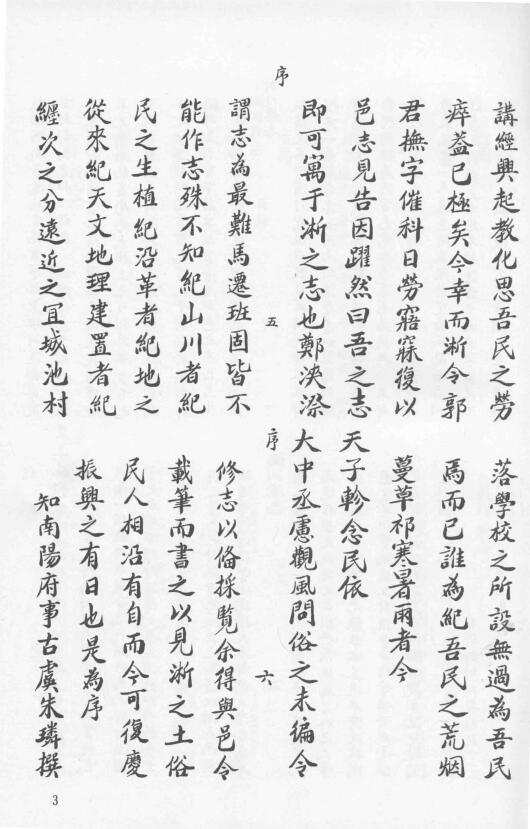 序
講經興起教化思吾民之勞
瘁葢已極矣今幸而淅令郭
君撫字催科日勞寤寐復以
邑志見告因躍然曰吾之志
即可寓于淅之志也鄭浹漈
五
謂志為最難馬遷班固皆不
能作志殊不知紀山川者紀
民之生植紀沿革者紀地之
從來紀天文地理建置者紀
纏次之分遠近之宜城池村
序
落學校之所設無過為吾民
焉而已誰為紀吾民之荒烟
蔓草祁寒暑雨者今
天子軫念民依
大中丞慮觀風問俗之未編令
六
修志以俻採覧余得與邑令
載筆而書之以見淅之土俗
民人相沿有自而今可復慶
振興之有日也是為序
知南陽府事古虞朱璘撰
3